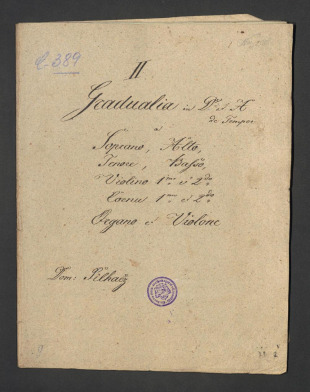 C 389
II
Gradualia in D et A
de Tempor
a
Soprano, Alto,
Tenore, Basso,
Violino 1mo è 2do
Cornu 1mo è 2do
Organo è Violone
Dom: